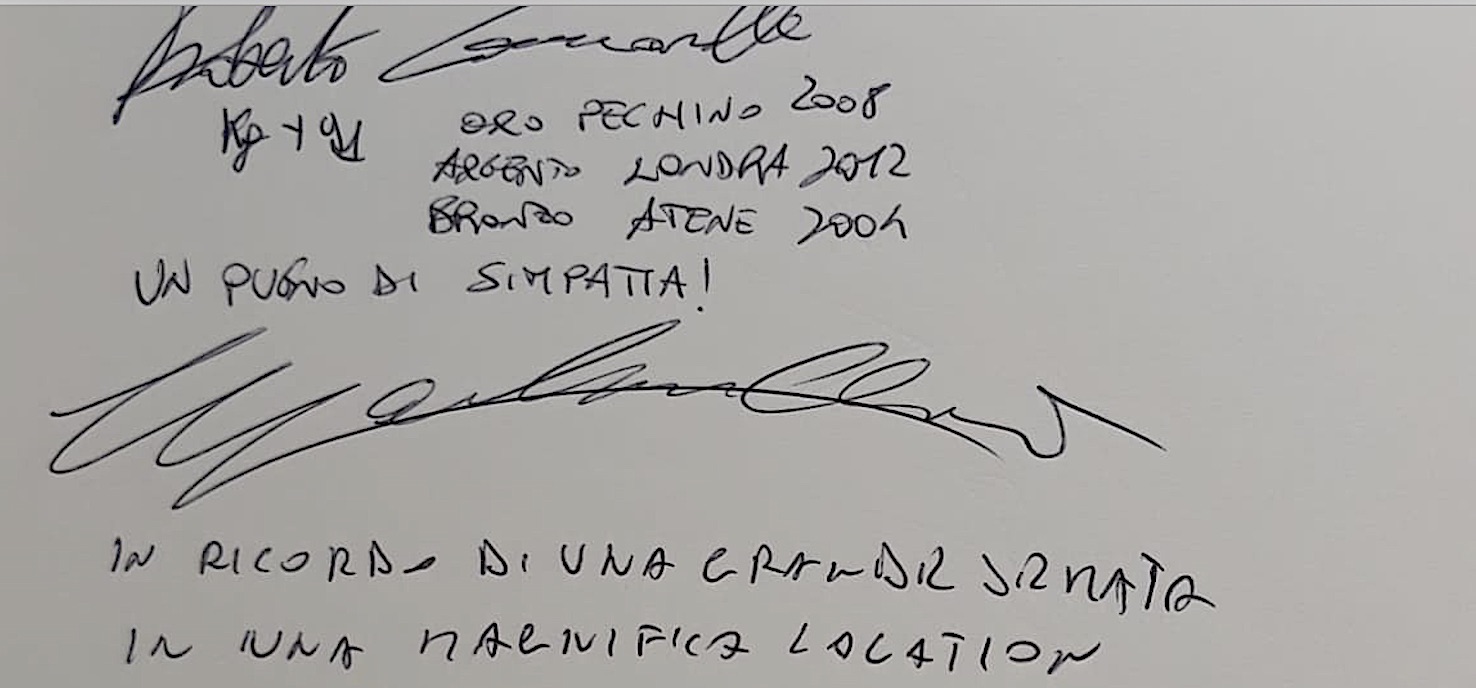 Roberto Cammarelle
Kg + 91 ORO PECHINO 2008
ARGENTO LONDRA 2012
BRONZO ATENE 2004
UN PUGNO DI SIMPATIA!
IN RICORDO DI UNA GRANDE SERATA
IN UNA MAGNIFICA LOCATION